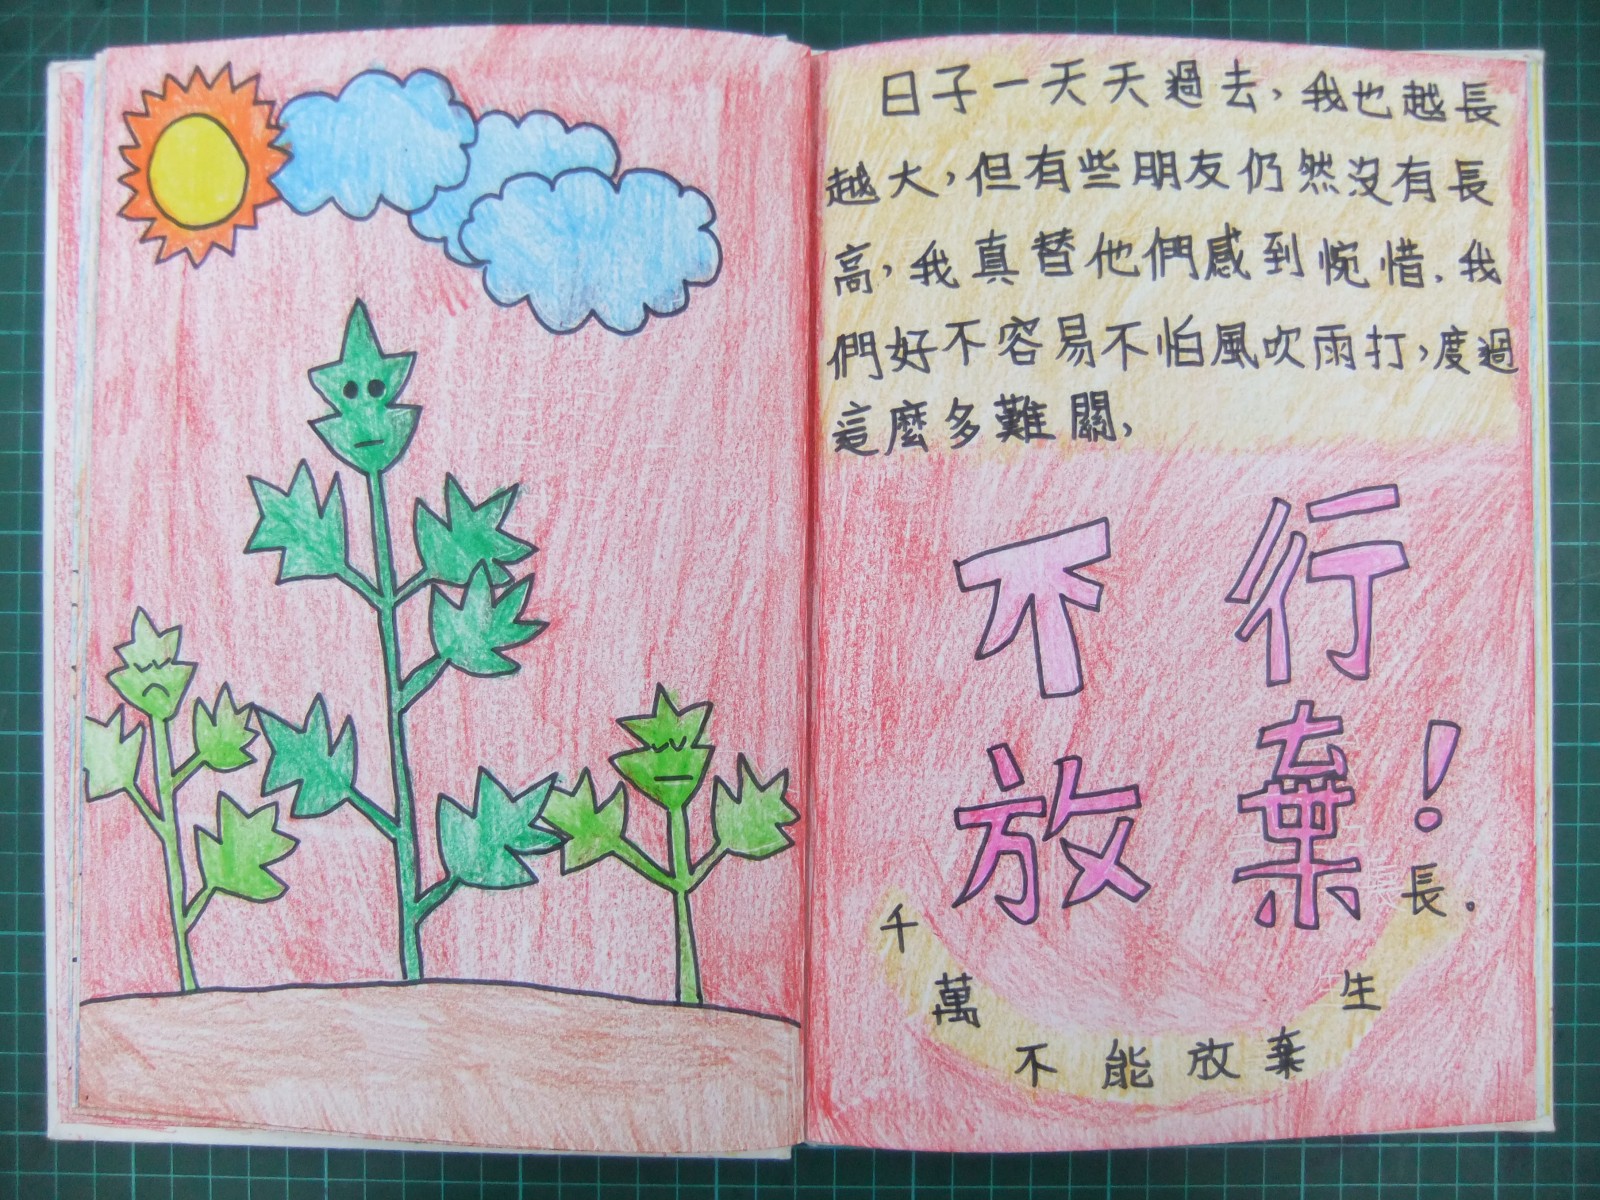 日子一天天過去，我也越長
越大，但有些朋友仍然沒有長
高，我真替他們感到惋惜．我
們好不容易不怕風吹雨打，度過
這麼多難關，
不行
放棄！
千萬不能放棄生長．